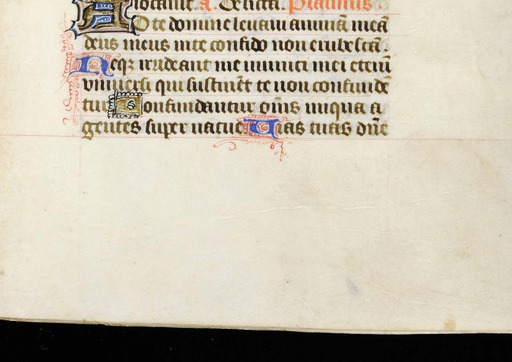 A. Delicta. Psalmus
AD te domine leuaui animā meā
deus meus in te confido non erubescā.
Neqʒ irrideant me inimici mei etenī
uniuersi qui sustinēt te non confundē
tur Confundantur om̄s iniqua a
gentes super uacue Uias tuas dn̄e